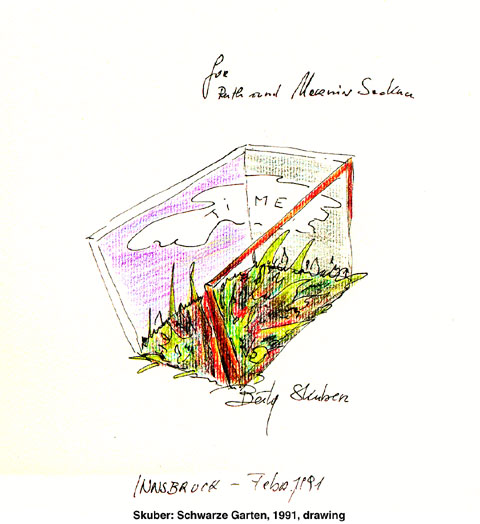 for
Ruth and Marvin Sackner
TiME
Berty Skuber
INNSBRUCK – Febr. 1991
Skuber: Schwarze Garten, 1991, drawing